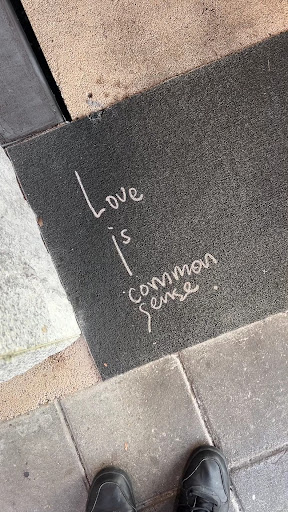 Love
is
common
sense.